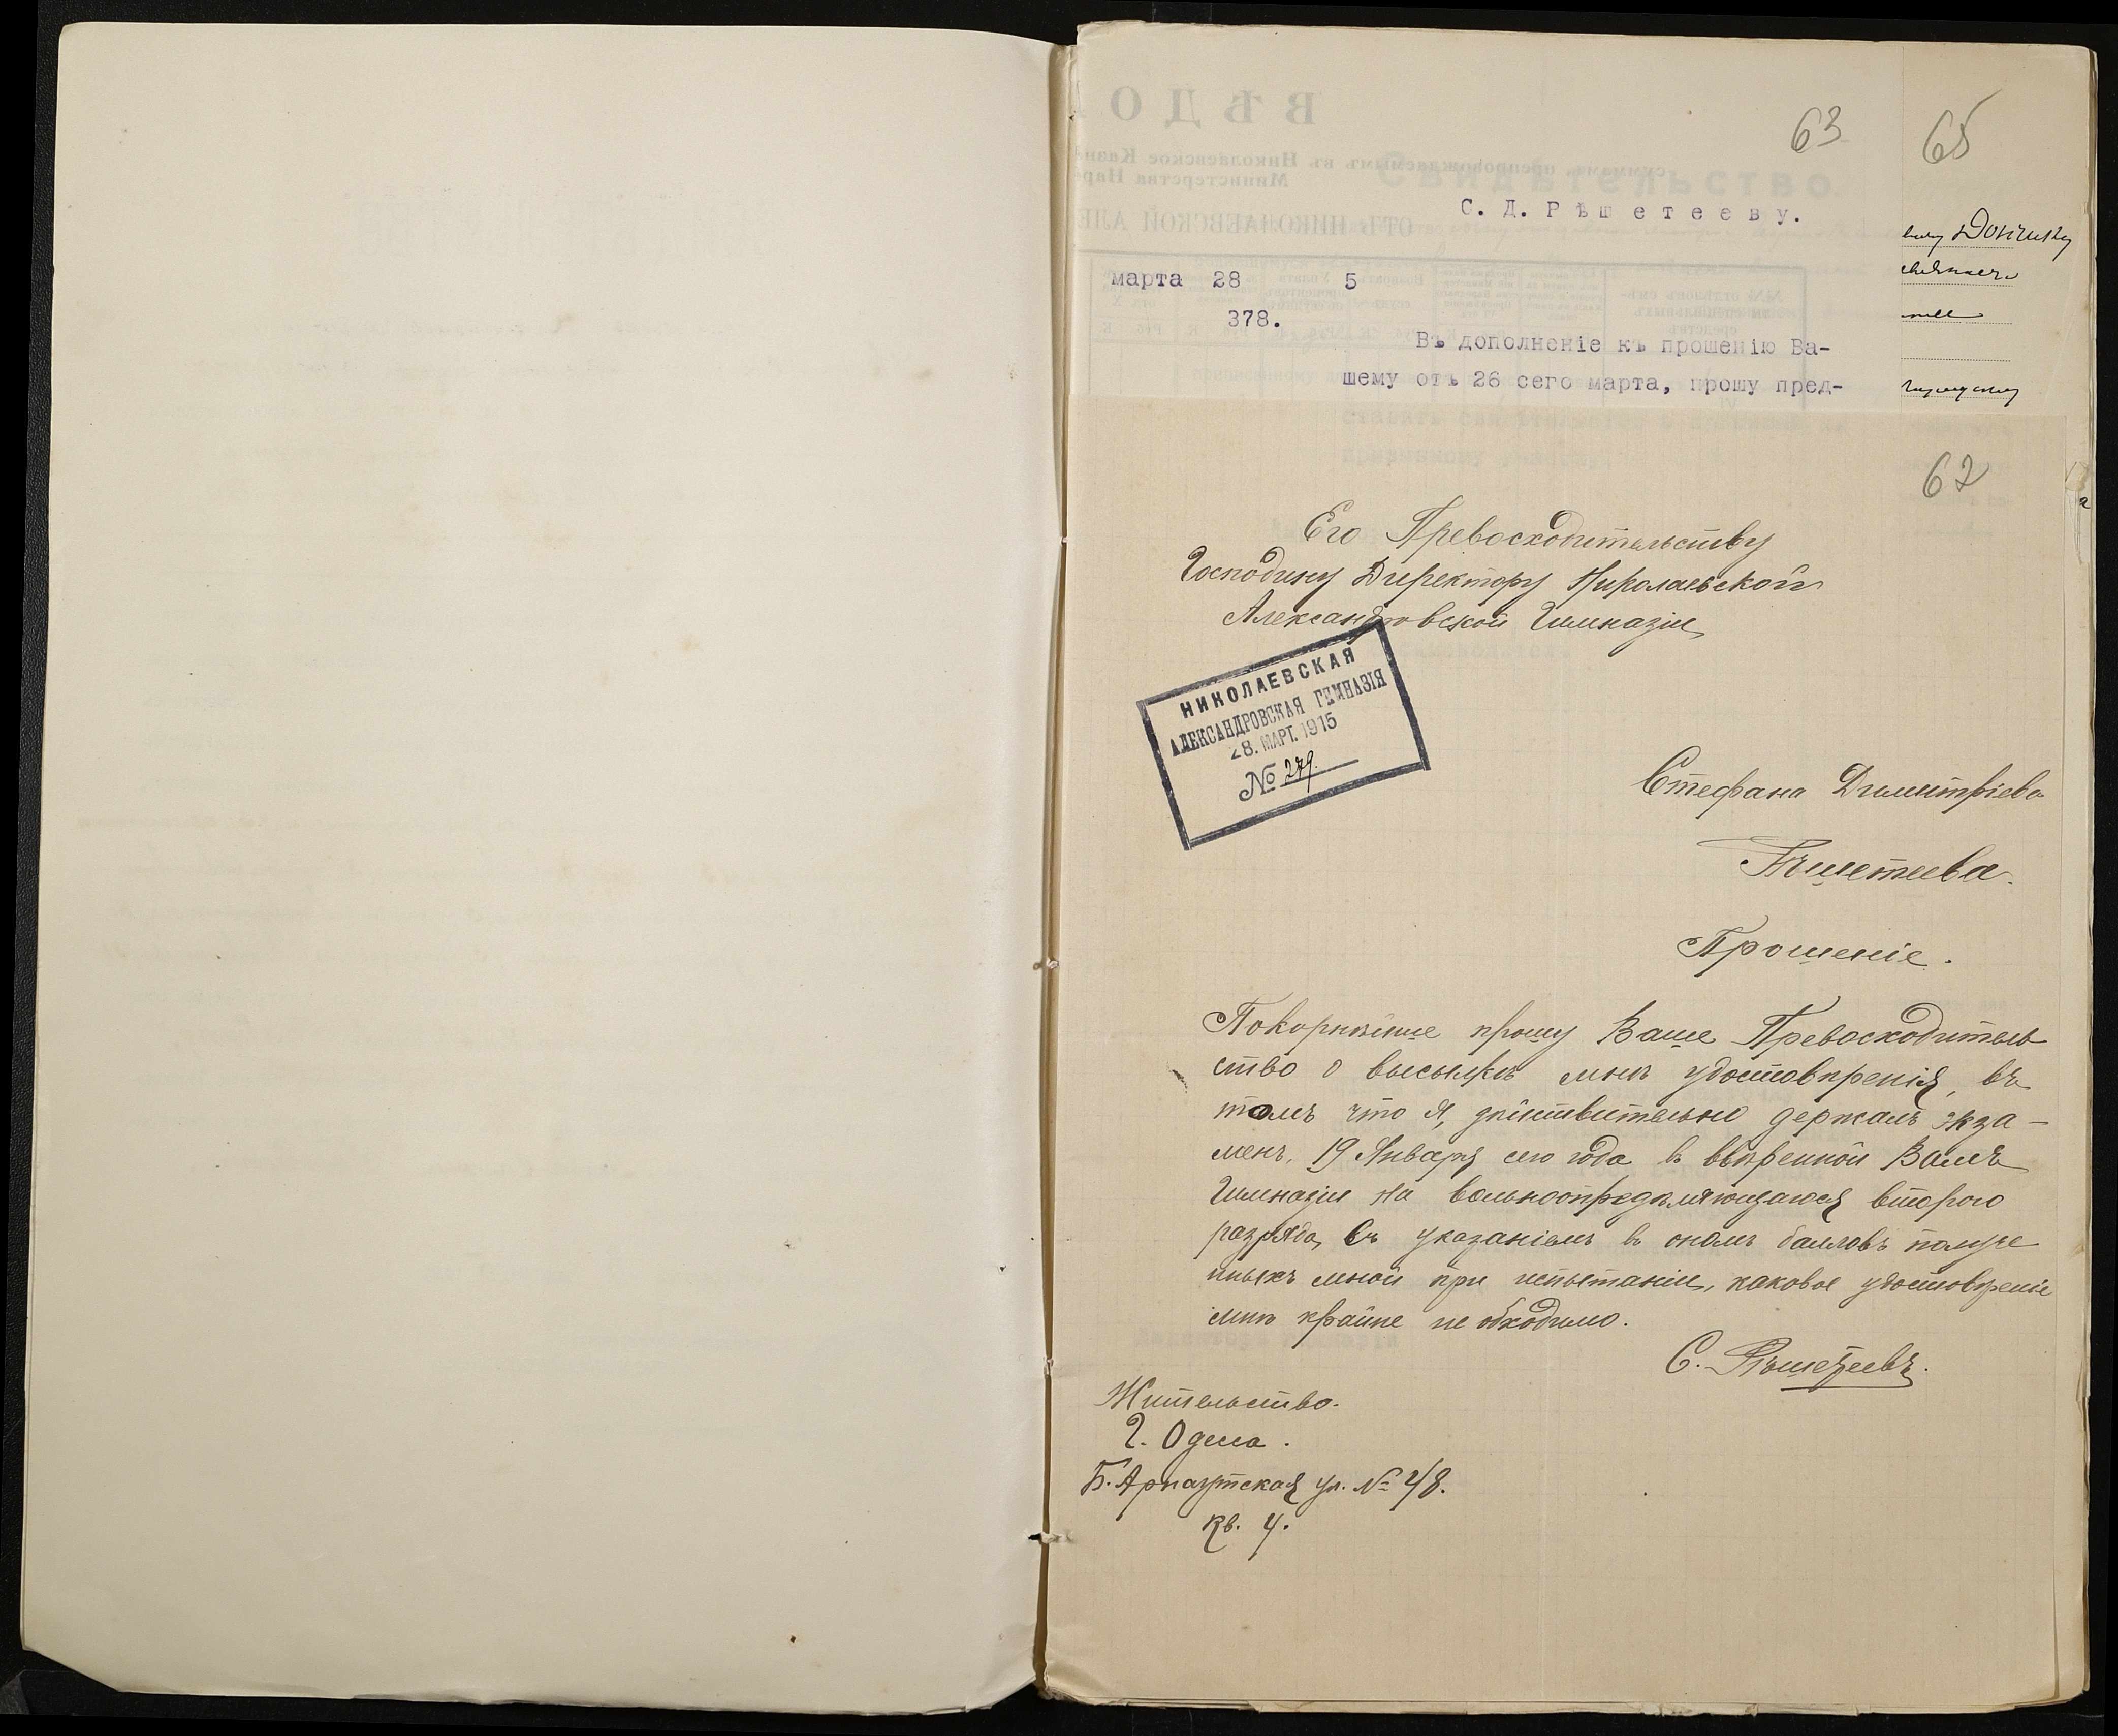 63
65
С. Д. Рѣшетееву.
марта 28 5
378.
Въ дополненіе къ прошенію Ва-
шему отъ 26 сего марта, прошу пред-
62
Его Превосходительству
Господину Директору Николаевской
Александровской Гимназіи
НИКОЛАЕВСКАЯ
АЛЕКСАНДРОВСКАЯ ГИМНАЗІЯ
28. МАРТ. 1915
№ 279.
Стефана Димитріева
Рѣшетеева.
Прошеніе.
Покорнѣйше прошу Ваше Превосходитель
ство о высылкѣ мнѣ удостовѣренія, въ
томъ что я, дѣйствительно держалъ экза-
менъ, 19 Января сего года въ ввѣренной Вамъ
Гимназіи на вольноопредѣляющагося второго
разряда, съ указаніемъ въ ономъ балловъ получе
нныхъ мной при испытаніи, каковое удостовѣреніе
мнѣ крайне необходимо.
С. Рѣшетеевъ.
Жительство.
Г. Одесса.
Б. Арнаутская ул. № 48.
кв. 4.